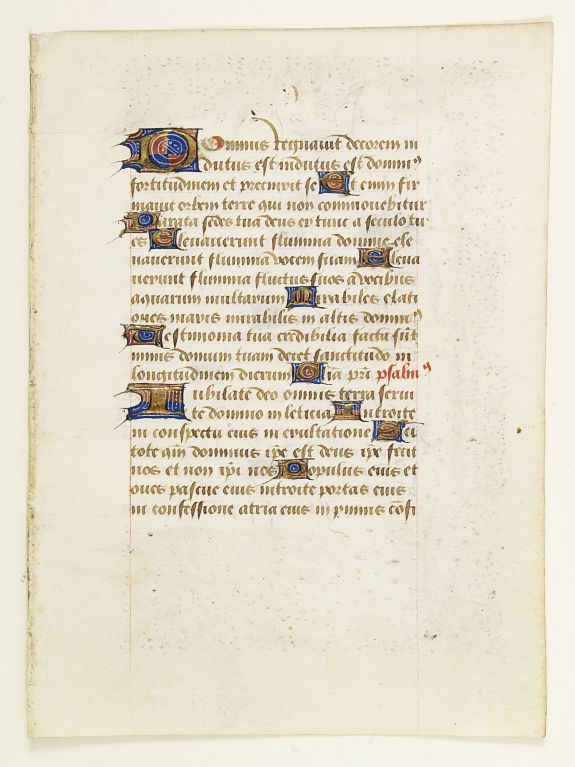 Dominus regnavit decorem in
dutus est indutus est domin⁹
fortitudinem et precinxit se Et enim fir
mavit orbem terre qui non commovebitur
Parata sedes tua deus ex tunc a seculo tu
es Elevaverunt flumina domine ele
vaverunt flumina vocem suam Eleva
verunt flumina fluctus suos a vocibus
aquarum multarum Mirabiles elati
ones maris mirabilis in altis domin⁹
Testimonia tua credibilia facta sūt
nimis domum tuam decet sanctitudo in
longitudinem dierum Glia pri psalm⁹
Iubilate deo omnis terra servi
te domino in leticia Introite
in conspectu eius in exultatione Sci
tote qm dominus ipe est deus ipe fecit
nos et non ipi nos Populus eius et
oves pascue eius introite portas eius
in confessione atria eius in ymnis cōfi